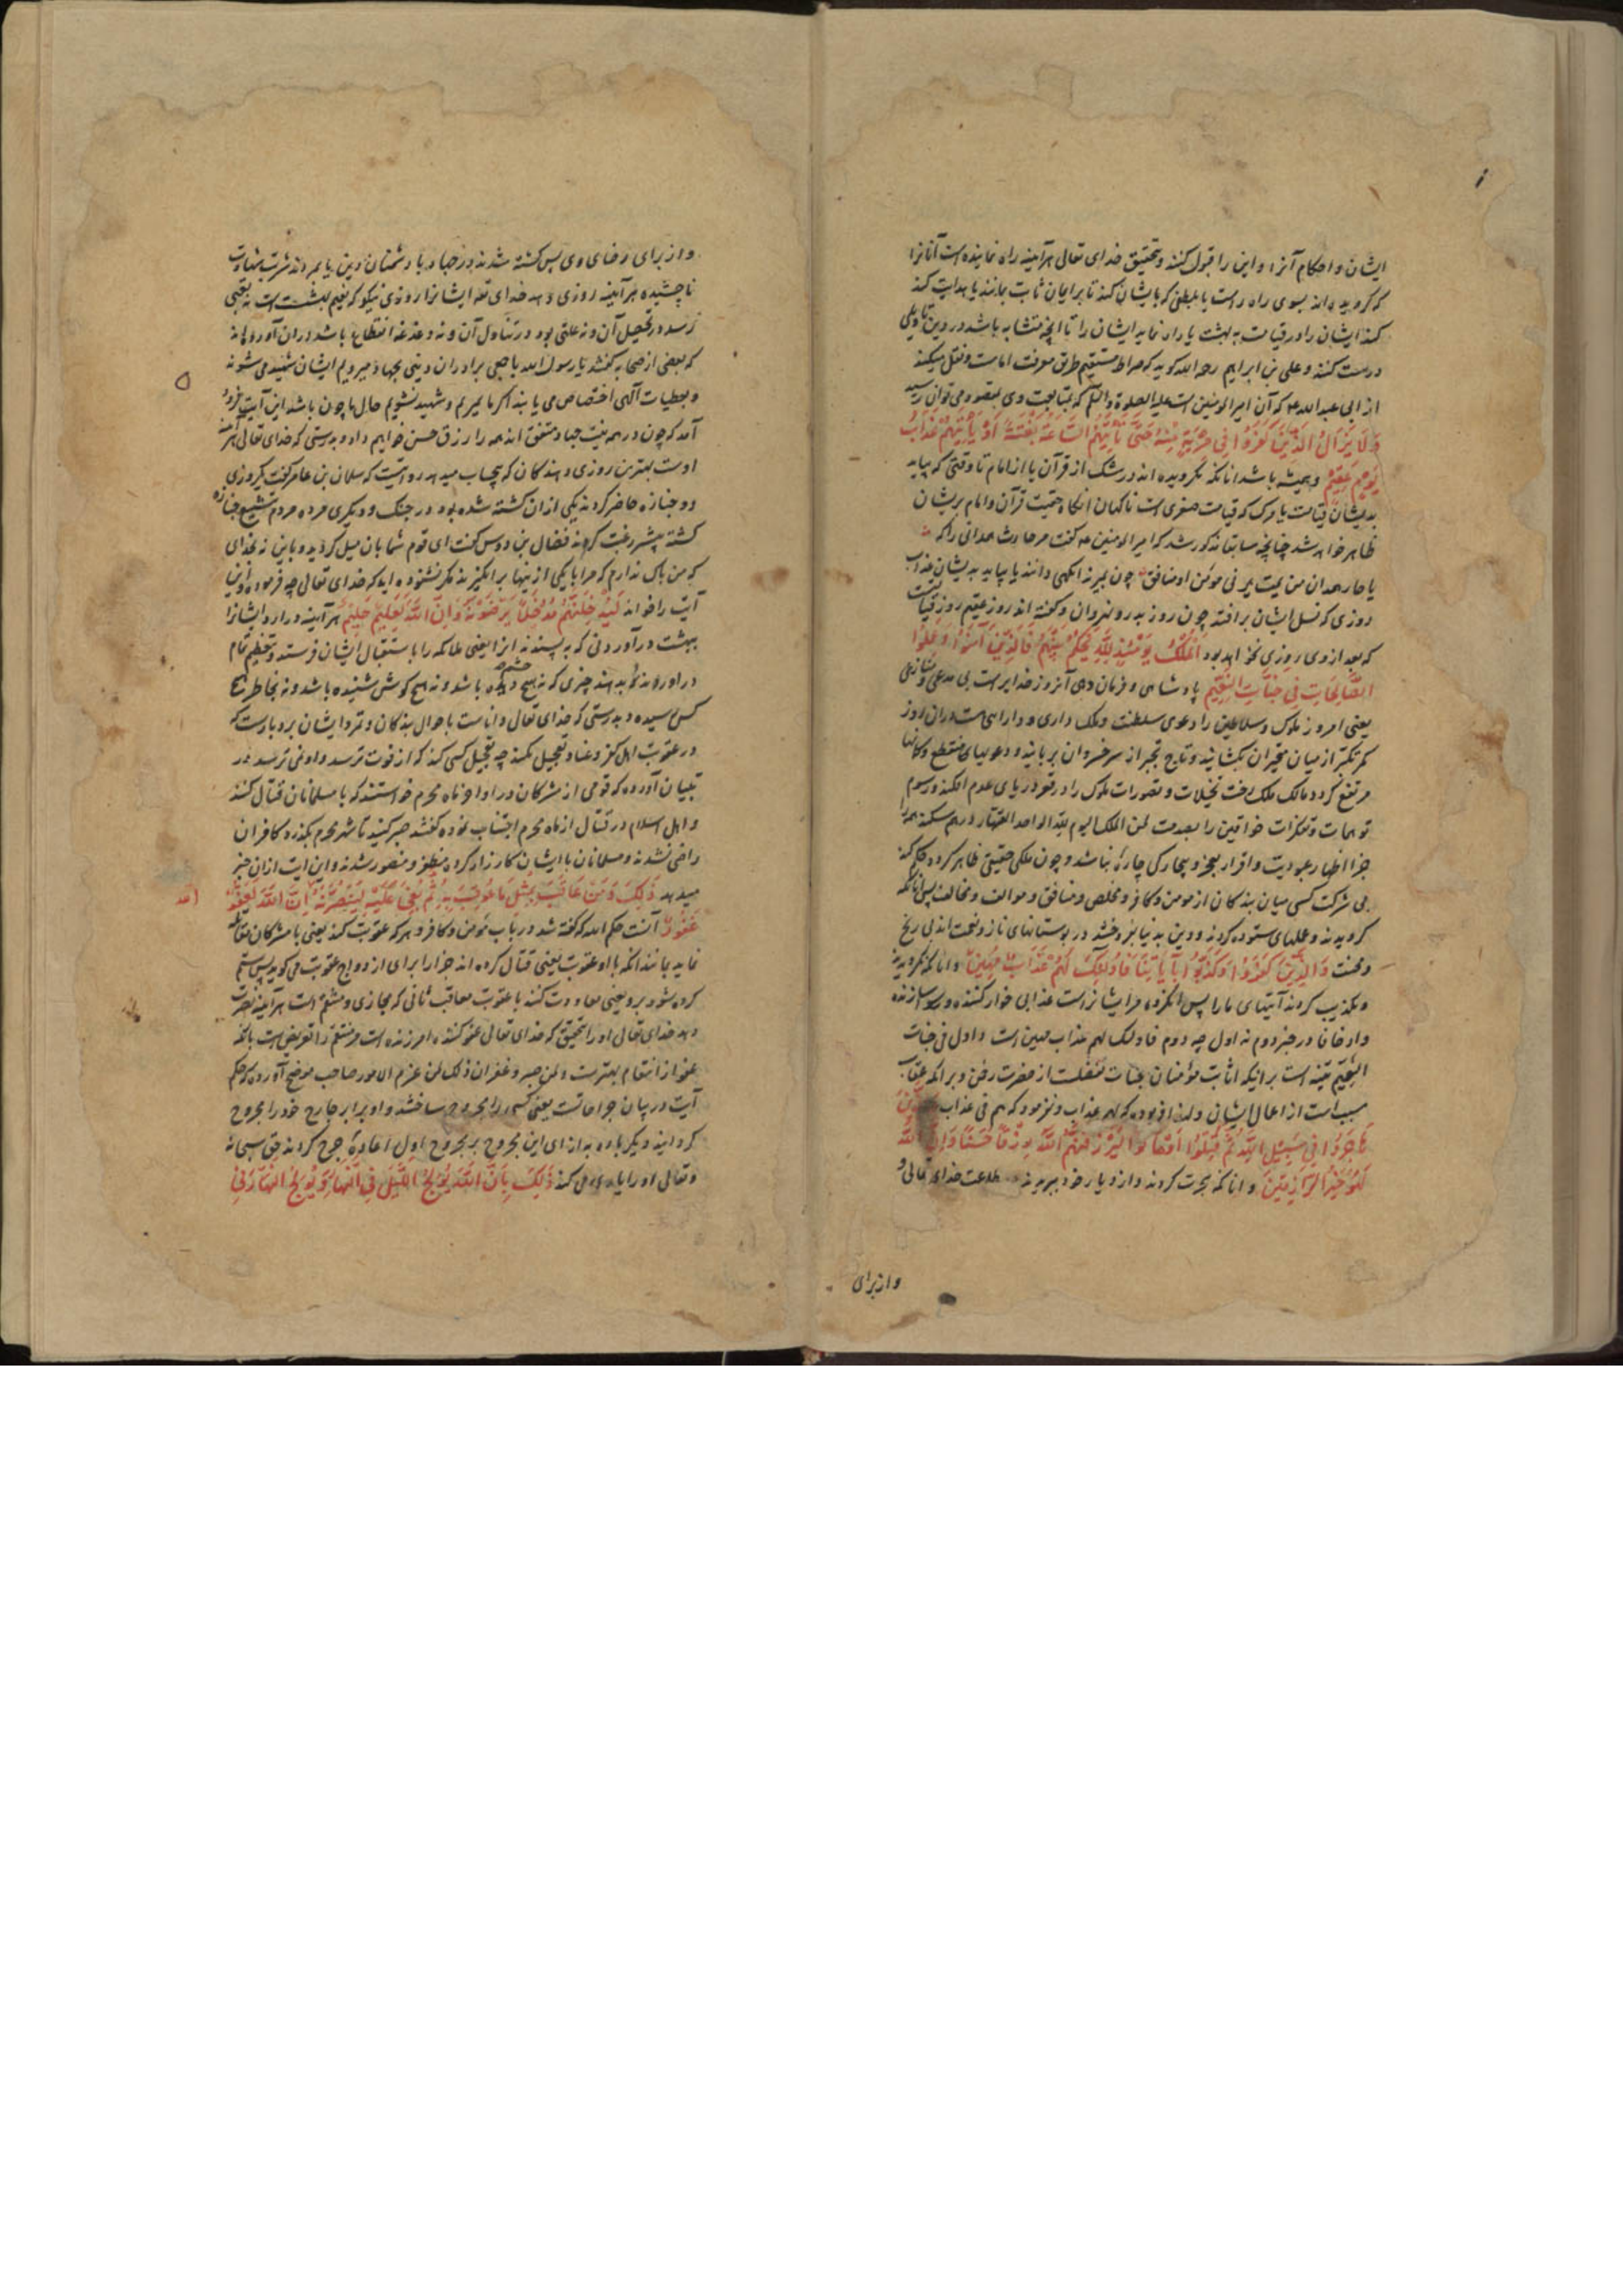 ایشان و احکام آنرا و این را قبول کنند و تحقیق خدای تعالی هرآینه راه نماینده است آنانرا
که گرویده اند بسوی راه راست یا بلطفی که بایشان کند تا بر ایمان ثابت بمانند یا هدایت کند
کند ایشان را در قیامت به بهشت یا راه نماید ایشان را تا آنچه متشابه باشد در دین تاویلی
درست کنند و علی بن ابراهیم رحمه الله گوید که صراط مستقیم طریق معرفت امامت و نقل میکند
از ابی عبد الله که آن امیر المومنین است علیه الصلوة والسلم که بمتابعت وی بمقصود می توان رسید
وَلَا يَزَالُ الَّذِينَ كَفَرُوا فِي مِرْيَةٍ مِنْهُ حَتَّى تَأْتِيَهُمُ السَّاعَةُ بَغْتَةً أَوْ يَأْتِيَهُمْ عَذَابُ
يَوْمٍ عَقِيمٍ و همیشه باشد آنانکه نگرویده اند در شک از قرآن یا از امام تا وقتی که بیاید
بدیشان قیامت یا مرگ که قیامت صغری است ناگهان آنگاه حقیت قرآن و امام بریشان
ظاهر خواهد شد چنانچه سابقا مذکور شد که امیر المومنین گفت مر حارث همدانی را که
یا حار همدان من یمت یرنی مومن او منافق چون بمیرند آگهی دانند یا بیاید بدیشان عذاب
روزی که نسل ایشان برافتد چون روز بدر و نهروان و گفته اند روز عقیم روز قیامت
که بعد از وی روزی نخواهد بود الْمُلْكُ يَوْمَئِذٍ لِلَّهِ يَحْكُمُ بَيْنَهُمْ فَالَّذِينَ آمَنُوا وَعَمِلُوا
الصَّالِحَاتِ فِي جَنَّاتِ النَّعِيمِ پادشاهی و فرمان دهی آنروز خدایراست بی مدعی و منازعی
یعنی امروز ملوک و سلاطین را دعوی سلطنت و ملک داری و دارایی هست در ان روز
کمر تکبر از میان متحیران بگشایند و تاج تجبر از سر خسروان بربایند و دعویهای منقطع و گمانها
مرتفع گردد مالک ملک رخت تخیلات و تصورات ملوک را در قعر دریای عدم افکند و رسوم
توهمات و تفکرات خواقین را بصدمت لمن الملک الیوم لله الواحد القهار درهم شکند همه را
جز اظهار عبودیت و اقرار بعجز و بیچارگی چاره نباشد و چون ملکی حقیقی ظاهر کرده حکم کند
بی شرکت کسی میان بندگان از مومن و کافر و مخلص و منافق و موالف و مخالف پس آنانکه
گرویدند و عملهای ستوده کردند و دین بدنیا نفروختند در بوستانهای ناز و نعمت اند بی رنج
و محنت وَالَّذِينَ كَفَرُوا وَكَذَّبُوا بِآيَاتِنَا فَأُولَئِكَ لَهُمْ عَذَابٌ مُهِينٌ و آنانکه نگرویدند
و تکذیب کردند آیتهای ما را پس آنگروه مر ایشانراست عذابی خوار کننده و رسوا سازنده
وادخال فا در خبر دوم نه اول چه دوم فاولئک لهم عذاب مهین است و اول فی جنات
النعیم تنبیه است برانیکه اثابت مؤمنان بجنات تفضلست از حضرت رحمن و برآنکه عقاب
مسبب است از اعمال ایشان و لهذا فرموده که لهم عذاب و نفرمود که هم فی عذاب وَالَّذِينَ
هَاجَرُوا فِي سَبِيلِ اللَّهِ ثُمَّ قُتِلُوا أَوْ مَاتُوا لَيَرْزُقَنَّهُمُ اللَّهُ رِزْقًا حَسَنًا وَإِنَّ اللَّهَ
لَهُوَ خَيْرُ الرَّازِقِينَ و آنانکه هجرت کردند و از دیار خود ببریدند طاعت خدای تعالی و
و از برای
و از برای رضای وی پس کشته شدند در جهاد با دشمنان دین یا بمردند شربت شهادت
ناچشیده هرآینه روزی دهد خدای تعالی ایشانرا روزی نیکو که نعیم بهشت است نه تعبی
رسد در تحصیل آن و نه علتی بود در تناول آن و نه دغدغه انقطاع باشد در ان آورده اند
که بعضی از صحابه گفتند یا رسول الله با جمعی برادران دینی بجهاد میرویم ایشان شهید می شوند
و بعطیات الهی اختصاص می یابند اگر ما بمیریم و شهید نشویم حال ما چون باشد این آیت فرود
آمد که چون در همه نیت جهاد متفق اند همه را رزق حسن خواهم داد و بدرستی که خدای تعالی هرآینه
اوست بهترین روزی دهندگان که بیحساب میدهد روایت است که سلمان بن عامر گفت که روزی
دو جنازه حاضر کردند یکی ازان کشته شده بود در جنگ و دیگری مرده مردم تشییع جنازه
کشته بیشتر رغبت کردند فضال بن دوس گفت ای قوم شما بان میل کردید و باین نه بخدای
که من باک ندارم که مرا با یکی از ینها برانگیزند مگر نشنوده اید که خدای تعالی چه فرموده و این
آیت را خواند لَيُدْخِلَنَّهُمْ مُدْخَلًا يَرْضَوْنَهُ وَإِنَّ اللَّهَ لَعَلِيمٌ حَلِيمٌ هرآینه درارد ایشانرا
ببهشت درآوردنی که به پسندند انرا یعنی ملائکه را باستقبال ایشان فرستد و بتعظیم تمام
دراوردند و بدهند چیزی که نه هیچ چشم دیده باشد و نه هیچ گوش شنیده باشد و نه بخاطر هیچ
کس رسیده و بدرستی که خدای تعالی داناست باحوال بندگان و تمرد ایشان بردبارست که
در عقوبت اهل کفر و عناد تعجیل نکند چه تعجیل کسی کند که از فوت ترسد و او نمی ترسد در
تبیان آورده که قومی از مشرکان در اواخر ماه محرم خواستند که با مسلمانان قتال کنند
و اهل اسلام در قتال از ماه محرم اجتناب نموده گفتند صبر کنید تا شهر محرم بگذرد کافران
راضی نشدند و مسلمانان با ایشان کارزار کرده مظفر و منصور شدند و این ایت ازان خبر
میدهد ذَلِكَ وَمَنْ عَاقَبَ بِمِثْلِ مَا عُوقِبَ بِهِ ثُمَّ بُغِيَ عَلَيْهِ لَيَنْصُرَنَّهُ اللَّهُ إِنَّ اللَّهَ لَعَفُوٌّ
غَفُورٌ آنست حکم الله که گفته شد در باب مؤمن و کافر و هرکه عقوبت کند یعنی با مشرکان مقاتله
نماید بمانند آنکه با او عقوبت یعنی قتال کرده اند جزا را برای ازدواج عقوبت می گوید پس ستم
کرده شود برو یعنی معاودت کنند با عقوبت معاقب ثانی که مجازی و منتقم است هرآینه نصرت
دهد خدای تعالی او را بتحقیق که خدای تعالی عفو کننده امرزنده است مر منتقم را تعریض است بانکه
عفو از انتقام بهترست و لمن صبر و غفر ان ذلک لمن عزم الامور صاحب موضح آورده که حکم
آیت در بیان جراحاتست یعنی کسی را مجروح ساختند و او برابر جارح خود را مجروح
گردانید دیگر باره به ازای این مجروح بر مجروح اول اعادهٔ جرح کردند حق سبحانه
و تعالی او را یاری کند ذَلِكَ بِأَنَّ اللَّهَ يُولِجُ اللَّيْلَ فِي النَّهَارِ وَيُولِجُ النَّهَارَ فِي